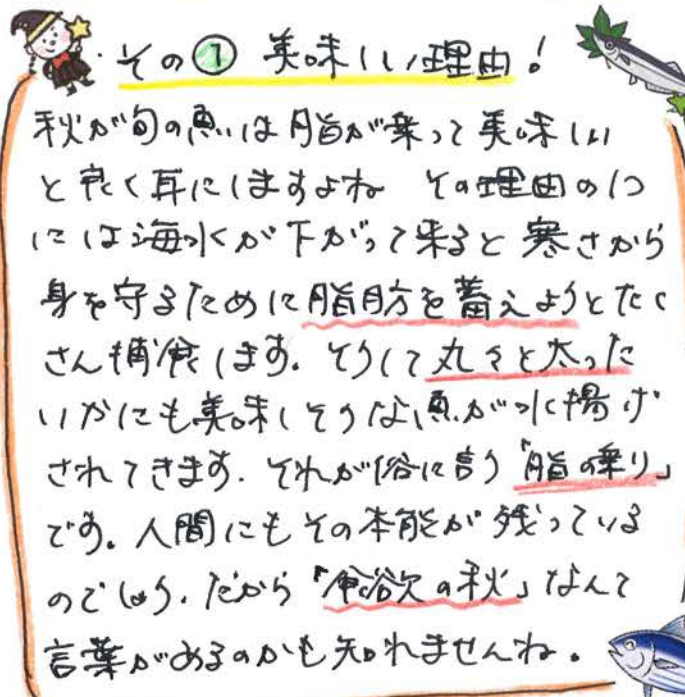 その① 美味しい理由!
秋が旬の魚は脂が乗って美味しい
と良く耳にしますよね その理由の1つ
には海水が下がって来ると寒さから
身を守るために脂肪を蓄えようとたく
さん捕食します。そうして丸々と太った
いかにも美味しそうな魚が水揚げ
されてきます。それが俗に言う「脂の乗り」
です。人間にもその本能が残っている
のでしょう。だから「食欲の秋」なんて
言葉があるのかも知れませんね。